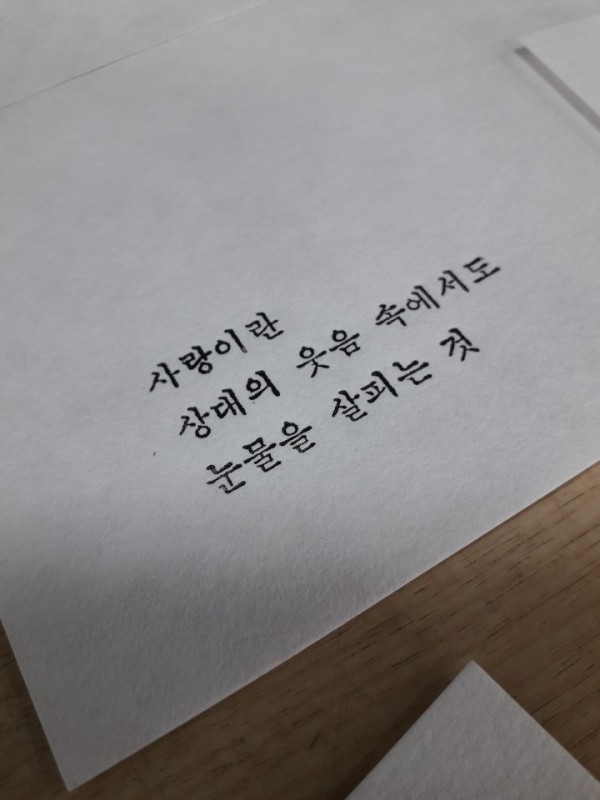 사랑이란
상대의 웃음 속에서도
눈물을 살피는 것